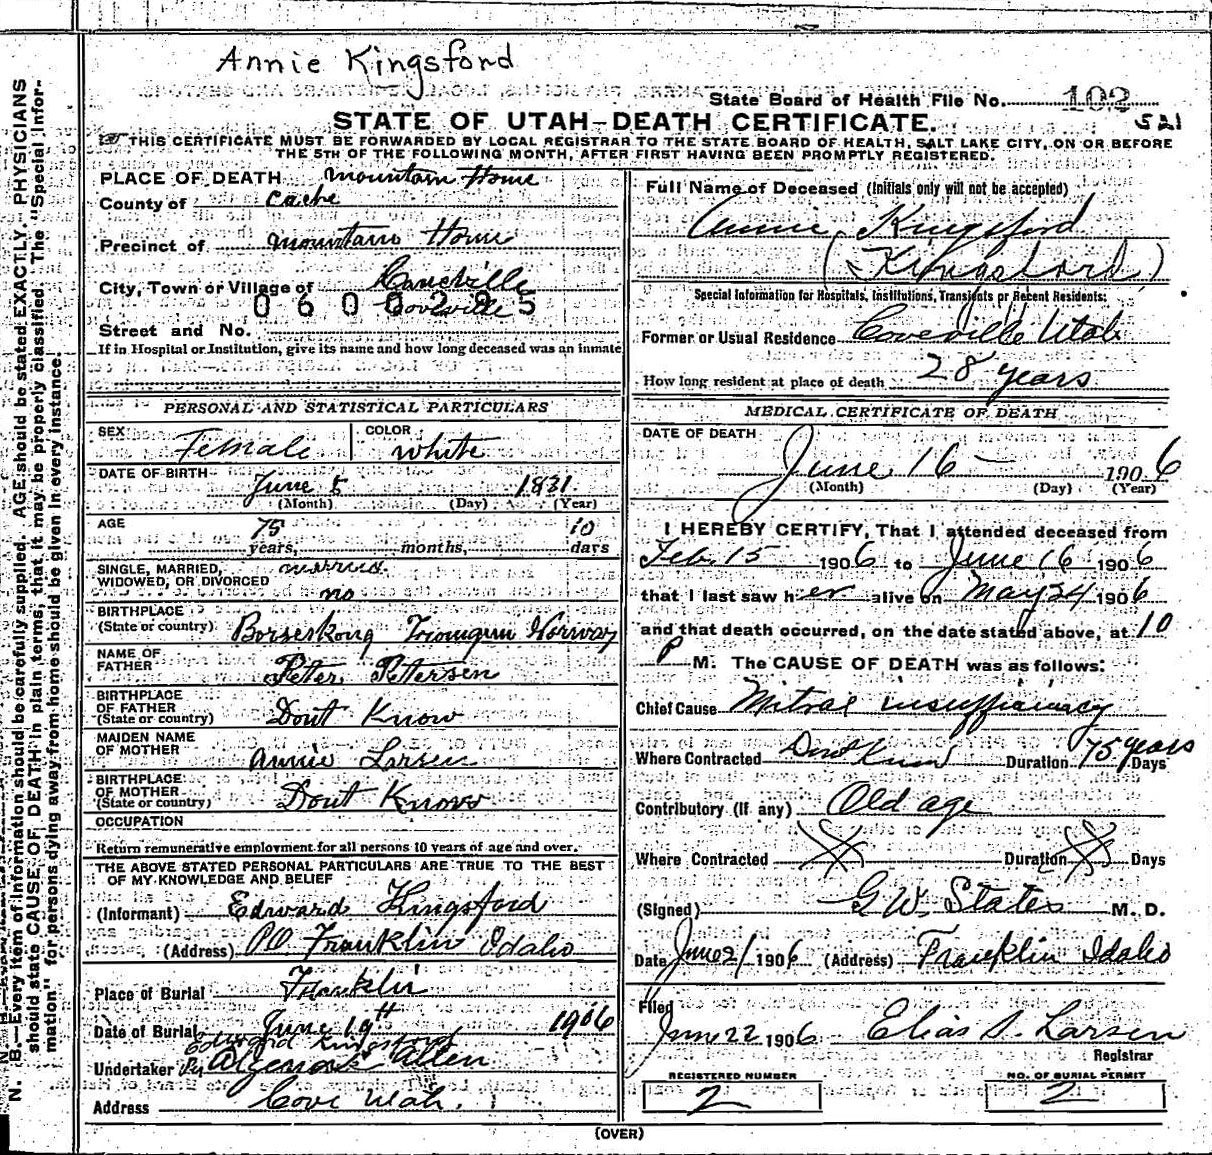 Annie Kingsford
State Board of Health File No. 102
521
STATE OF UTAH—DEATH CERTIFICATE.
THIS CERTIFICATE MUST BE FORWARDED BY LOCAL REGISTRAR TO THE STATE BOARD OF HEALTH, SALT LAKE CITY, ON OR BEFORE
THE 5TH OF THE FOLLOWING MONTH, AFTER FIRST HAVING BEEN PROMPTLY REGISTERED.
N. B.—Every item of information should be carefully supplied. AGE should be stated EXACTLY. PHYSICIANS
should state CAUSE OF DEATH in plain terms, that it may be properly classified. The "Special Infor-
mation" for persons dying away from home should be given in every instance.
PLACE OF DEATH Mountain Home
County of Cache
Precinct of Mountain Home
City, Town or Village of
Coveville
0600295
Street and No.
If in Hospital or Institution, give its name and how long deceased was an inmate
PERSONAL AND STATISTICAL PARTICULARS
SEX Female COLOR white
DATE OF BIRTH June 5 1831
(Month) (Day) (Year)
AGE 75 years, months, 10 days
SINGLE, MARRIED, married
WIDOWED, OR DIVORCED no
BIRTHPLACE
(State or country) Norway
NAME OF
FATHER Peter Petersen
BIRTHPLACE
OF FATHER
(State or country) Dont Know
MAIDEN NAME
OF MOTHER Annie Larsen
BIRTHPLACE
OF MOTHER
(State or country) Dont Know
OCCUPATION
Return remunerative employment for all persons 10 years of age and over.
THE ABOVE STATED PERSONAL PARTICULARS ARE TRUE TO THE BEST
OF MY KNOWLEDGE AND BELIEF
(Informant) Edward Kingsford
(Address) PO Franklin Idaho
Place of Burial Franklin
Date of Burial June 19th 1906
Edward Kingsford
Undertaker Allen
Address Cove Utah.
Full Name of Deceased (Initials only will not be accepted)
Annie Kingsford
(Kingsford)
Special Information for Hospitals, Institutions, Transients or Recent Residents:
Former or Usual Residence Coveville Utah
How long resident at place of death 28 years
MEDICAL CERTIFICATE OF DEATH
DATE OF DEATH
June 16 — 1906
(Month) (Day) (Year)
I HEREBY CERTIFY, That I attended deceased from
Feb. 15 1906 to June 16 1906
that I last saw her alive on May 24 1906
and that death occurred, on the date stated above, at 10
P M. The CAUSE OF DEATH was as follows:
Chief Cause Mitral insufficiency
Where Contracted Dont Know Duration 75 years Days
Contributory (If any) Old age
Where Contracted Duration Days
(Signed) G W. States M. D.
Date June 21 1906 (Address) Franklin Idaho
Filed
June 22 1906 Elias S. Larsen
Registrar
REGISTERED NUMBER
2
NO. OF BURIAL PERMIT
2
(OVER)